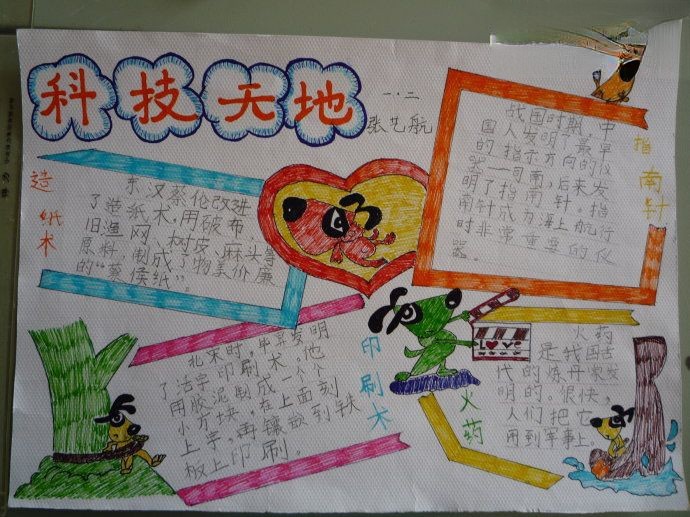 科技天地
一·二
张艺航
造纸术
东汉蔡伦改进
了造纸术,用破布、
旧渔网、树皮、麻头等
原料,制成了物美价廉
的“蔡侯纸”。
指南针
战国时期,中
国人发明了最早
的指示方向的仪
器—司南,后来发
明了指南针。指
南针成为海上航行
时非常重要的仪
器。
印刷术
北宋时,毕昇发明
了活字印刷术,他
用胶泥制成一个个
小方块,在上面刻
上字,再镶嵌到铁
板上印刷。
火药
火药
是我国古
代的炼丹家发
明的。很快,
人们把它
用到军事上。